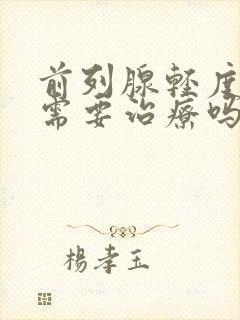 前列腺轻度
需要治療吗
楊孝玉